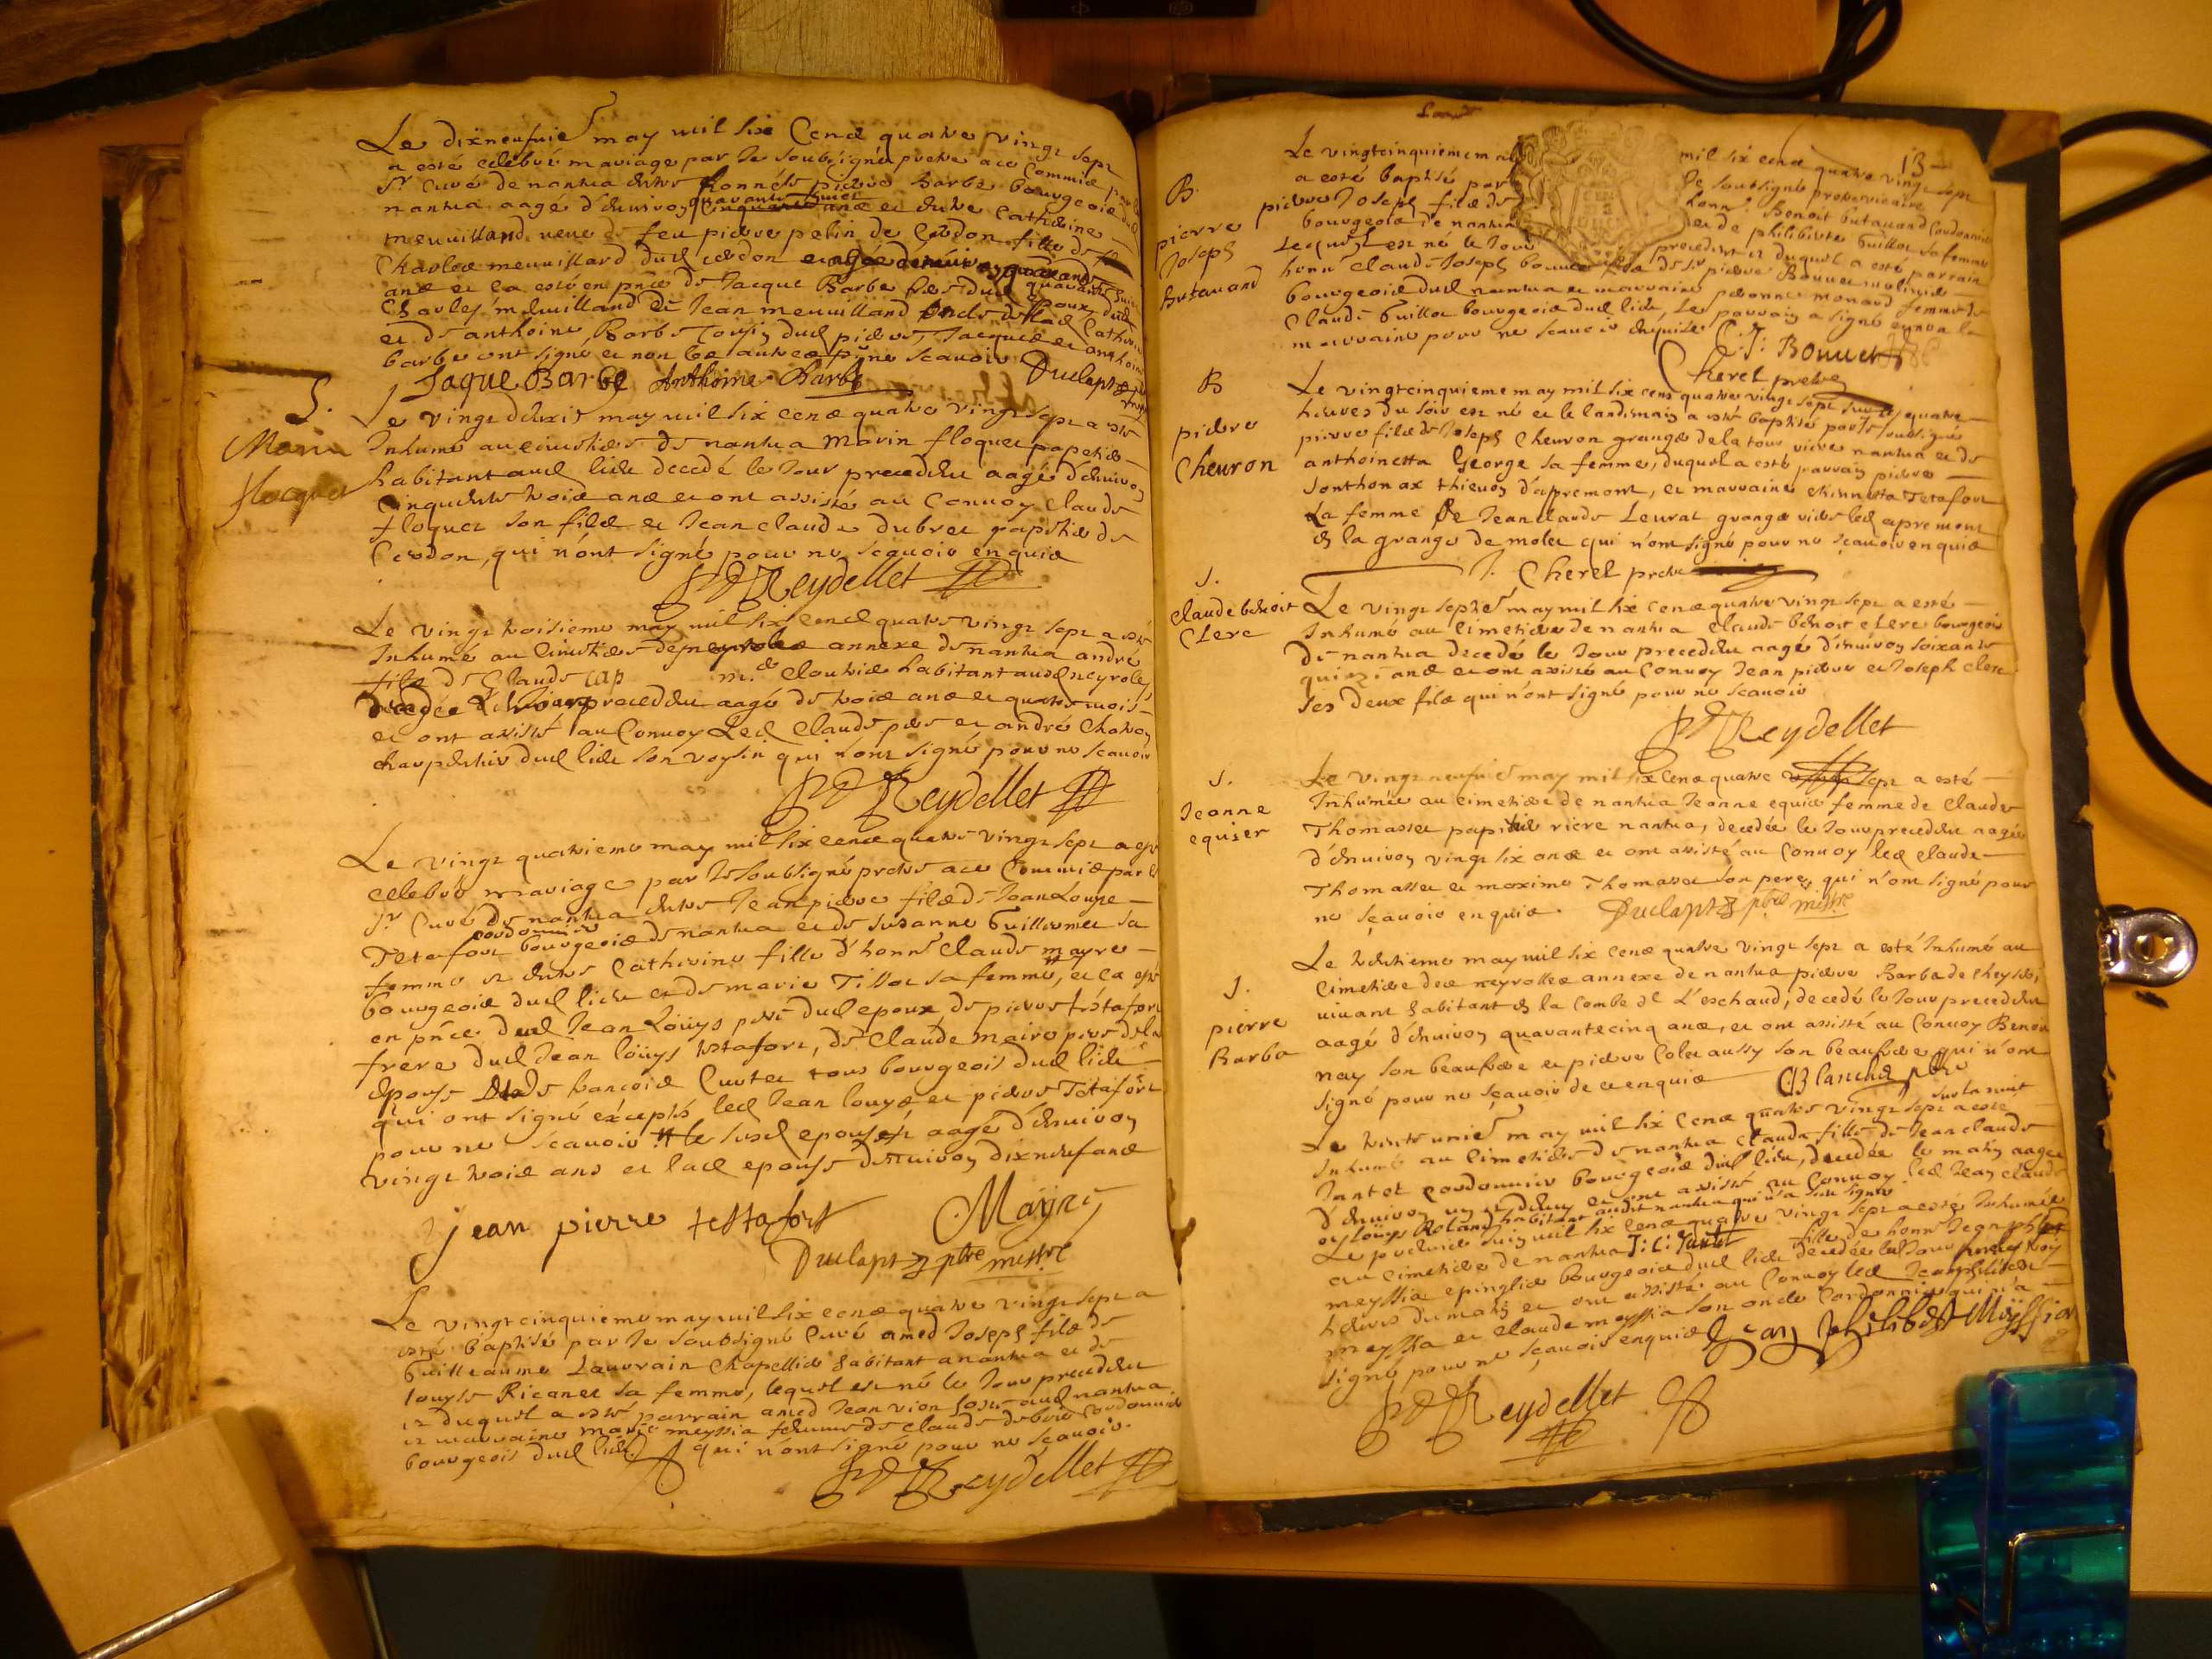 Le dixneufuie may mil six Cens quatre vingt sept
a esté celebré mariage par Je soubsigné prestre a ce Commis par
Sr Curé de nantua entre honnête pierre Barbe bourgeois dud
quarante huict
nantua aagé d'enuiron ans et entre Catherine
meruilland veue de feu pierre pelin de Cerdon fille de
Charles meruillard dud cerdon
ans et ce esté en pnce de Jacque Barbe
Charles meruilland et Jean meruilland oncle de lad Catherine
et de anthoine Barbe cousin dud pierre, Jacques et anthoine
barbe ont signé et non les autres pour ne scauoir
Jaque Barbe Anthoine Barbe Duclapt
S.
Marin
floquet
Le vingt deuxie may mil six cens quatre vingt sept a esté
Inhumé au cimetiere de nantua Marin floquet papetier
habitant aud lieu decedé le Jour precedent aagé d'enuiron
Cinquente trois ans et ont assisté au Conuoy Claude
floquet son fils et Jean claude dubret papetier de
Cerdon, qui n'ont signé pour ne scauoir enquis
Reydellet
Le vingt troisieme may mil six cens quatre vingt sept a esté
Inhumé au cimetiere de neyrolles annexe de nantua andré
fils de Claude cap md cloutier habitant aud neyrolles
decedé le Jour precedent aagé de trois ans et quatre mois
et ont assisté au Conuoy Led Claude pere et andré
charpentier dud lieu son voysin qui n'ont signé pour ne scauoir
Reydellet
Le vingt quatrieme may mil six cens quatre vingt sept a esté
celebré mariage par Je soubsigné prestre a ce Commis par le
Sr Curé de nantua entre Jean pierre fils de Jean Louys
cordonnier
Tetafort bourgeois de nantua et de susanne Guillermet sa
femme et entre Catherine fille d'honn Claude mayre
bourgeois dud lieu et de marie Tissot sa femme, et ce esté
en pnce dud Jean Loüys pere dud epoux, de pierre tetafort
frere dud Jean loüys tetafort, de Claude maire pere de la
epouse de francois Curtet tous bourgeois dud lieu
qui ont signé exceptés led Jean louys et pierre Tetafort
pour ne scauoir le susd epoux aagé d'enuiron
vingt trois ans et lad epouse d'enuiron dixneuf ans
Jean pierre testafort Mayre
Duclapt ptre missre
Le vingtcinquieme may mil six cens quatre vingt sept a
esté baptisé par Je soubsigné Curé amed Joseph fils de
Guilleaume Lauurain Chapellier habitant a nantua et de
louyse Ricanet sa femme, lequel est né le Jour precedent
et duquel a esté parrain amed Jean vion hoste aud nantua
et marraine marie meyssia femme de claude debois cordonnier
bourgeois dud lieu qui n'ont signé pour ne scauoir.
Reydellet
13
B.
pierre
Joseph
Butauand
Le vingtcinquieme may mil six cens quatre vingt sept
a esté baptisé par Je soubsigné prestre vicaire
pierre Joseph fils de honn Benoit butauand Cordonnier
bourgeois de nantua et de philiberte Guillot sa femme
Lequel est né le Jour precedent et duquel a esté parrain
honn Claude Joseph bonnet fils de Sr pierre Bonnet
bourgeois dud nantua et marraine pernonne monard femme de
Claude Guillot bourgeois dud lieu, Le parrain a signé et non la
marraine pour ne scauoir enquise C. J. Bonnet
Cherel prestre
B
pierre
Cheuron
Le vingtcinquieme may mil six cens quatre vingt sept sur les quatre
heures du soir est né et le landemain a esté baptisé par Je soubsigné
pierre fils de Joseph Cheuron granger de la tour riere nantua et de
anthoinetta George sa femme, duquel a esté parrain pierre
Jonthonax thieuon d'apremont, et marraine estiennetta Tetafort
La femme de Jean claude Leurat granger riere led apremont
en la grange de molet qui n'ont signé pour ne scauoir enquis
J. Cherel prestre
S.
Claude benoit
Clerc
Le vingt septie may mil six cens quatre vingt sept a esté
Inhumé au Cimetiere de nantua Claude benoit Clerc bourgeois
de nantua decedé le Jour precedent aagé d'enuiron soixante
quinze ans et ont assisté au Conuoy Jean pierre et Joseph clerc
ses deux fils qui n'ont signé pour ne scauoir
Reydellet
S.
Jeanne
equiser
Le vingt neufuie may mil six Cens quatre vingt sept a esté
Inhumée au cimetiere de nantua Jeanne equis femme de Claude
Thomasset papetier riere nantua, decedée le Jour precedent aagée
d'enuiron vingt six ans et ont assisté au Conuoy led Claude
Thomasset et maxime Thomasset son pere, qui n'ont signé pour
ne sçauoir enquis. Duclapt ptre missre
S.
pierre
Barba
Le trentieme may mil six Cens quatre vingt sept a esté Inhumé au
Cimetiere des neyrolles annexe de nantua pierre Barba de
viuant habitant en la Combe de L'eschaud, decedé le Jour precedent
aagé d'enuiron quarante cinq ans, et ont assisté au Conuoy Benoit
nay son beaufrere et pierre Colet aussy son beaufrere qui n'ont
signé pour ne sçauoir de ce enquis C. Blanchet ptre
sur la nuit
Le trente unie may mil six Cens quatre vingt sept a esté
Inhumé au Cimetiere de nantua Clauda fille de Jean claude
Jantet cordonnier bourgeois dud lieu, decedée le matin aagée
d'enuiron et ont assisté au Conuoy led Jean claude
et Loüys Roland habitant audit nantua qui n'a sceu signer
J: C: Jantet
Le premier Juin mil six cens quatre vingt sept a esté Inhumée
au cimetiere de nantua fille de honn Jean philibert
meyssia epinglier bourgeois dud lieu decedée
heures du matin et ont assisté au Conuoy led Jean philibert
meyssia et Claude meyssia son oncle Cordonnier qui n'a
signé pour ne sçauoir enquis Jean philibert Meyssia
Reydellet